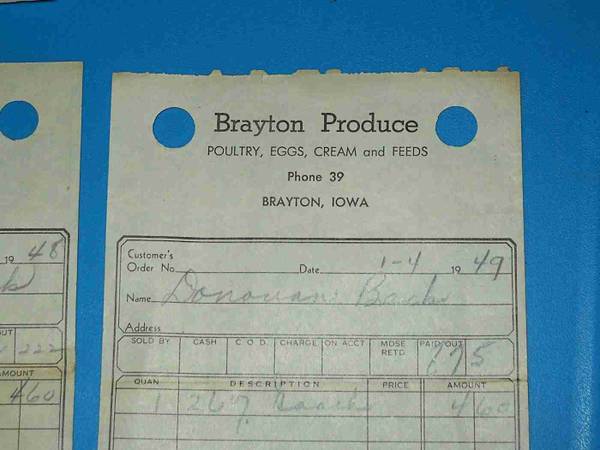 Brayton Produce
POULTRY, EGGS, CREAM and FEEDS
Phone 39
BRAYTON, IOWA
Customer's
Order No. Date 1-4 19 49
Name Donovan
Address
SOLD BY CASH C O D CHARGE ON ACCT MDSE RETD PAID OUT 175
QUAN DESCRIPTION PRICE AMOUNT
1 460
19 48
OUT
222
AMOUNT
460